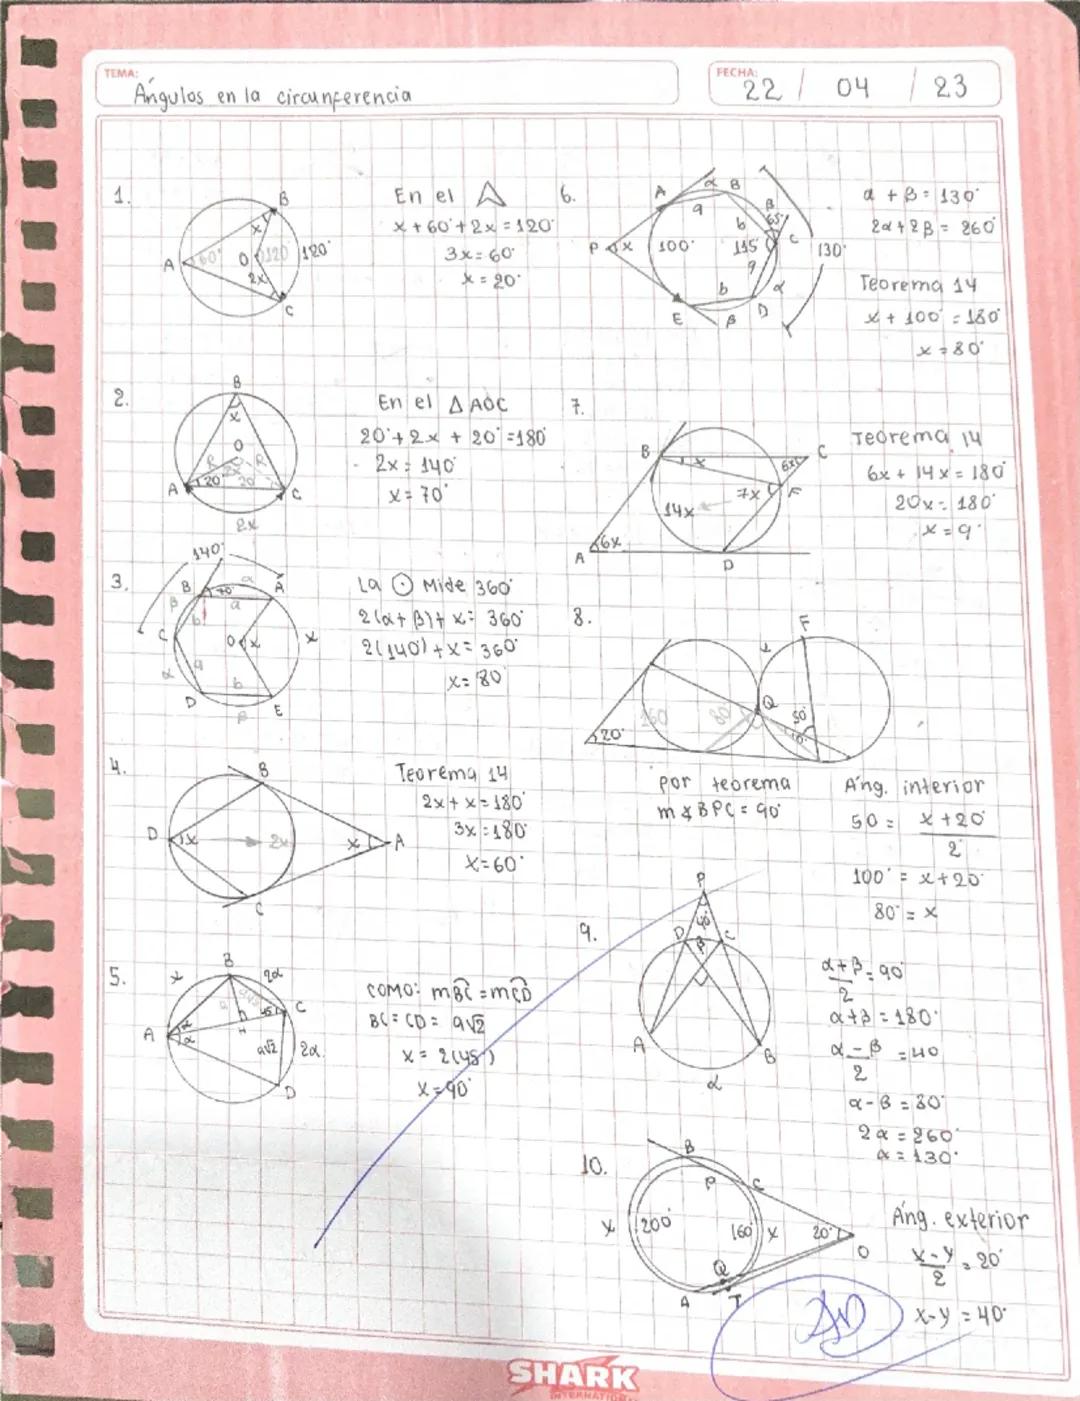 TEMA:
Ángulos en la circunferencia
FECHA:
22 / 04 / 23
1.
A
B
C
O
60°
x
120
2x
120°
En el
x + 60° + 2x = 120°
3x = 60°
x = 20°
2.
B
x
O
R
R
2x
A
20°
20°
C
2x
En el △ AOC
20° + 2x + 20° = 180°
2x = 140°
x = 70°
3.
140°
B
70°
α
A
β
a
b
C
O
x
x
a
α
b
D
β
E
La ⊙ Mide 360°
2(α + β) + x = 360°
2(140°) + x = 360°
x = 80°
4.
B
D
x
2x
x
A
C
Teorema 14
2x + x = 180°
3x = 180°
x = 60°
5.
x
B
2α
45
a
h
45
C
A
α
α
H
a√2
2α
D
COMO: mBC = mCD
BC = CD = a√2
x = 2(45°)
x = 90°
6.
A
α
B
a
β
b
65°
P
x
100°
115
C
130°
a
b
α
E
β
D
α + β = 130°
2α + 2β = 260°
Teorema 14
x + 100° = 180°
x = 80°
7.
B
x
6x
C
7x
F
14x
A
6x
D
Teorema 14
6x + 14x = 180°
20x = 180°
x = 9°
8.
F
x
Q
160
80
50°
20°
por teorema
m∡BPC = 90°
Áng. interior
50 = x + 20°
2
100° = x + 20°
80° = x
9.
P
40°
D
β
C
A
B
α
α + β = 90°
2
α + β = 180°
α - β = 40
2
α - β = 80°
2α = 260°
α = 130°
10.
B
P
C
x
200°
160°
x
20°
O
Q
A
T
Áng. exterior
x - y = 20°
2
x - y = 40°
SHARK
INTERNATIONAL